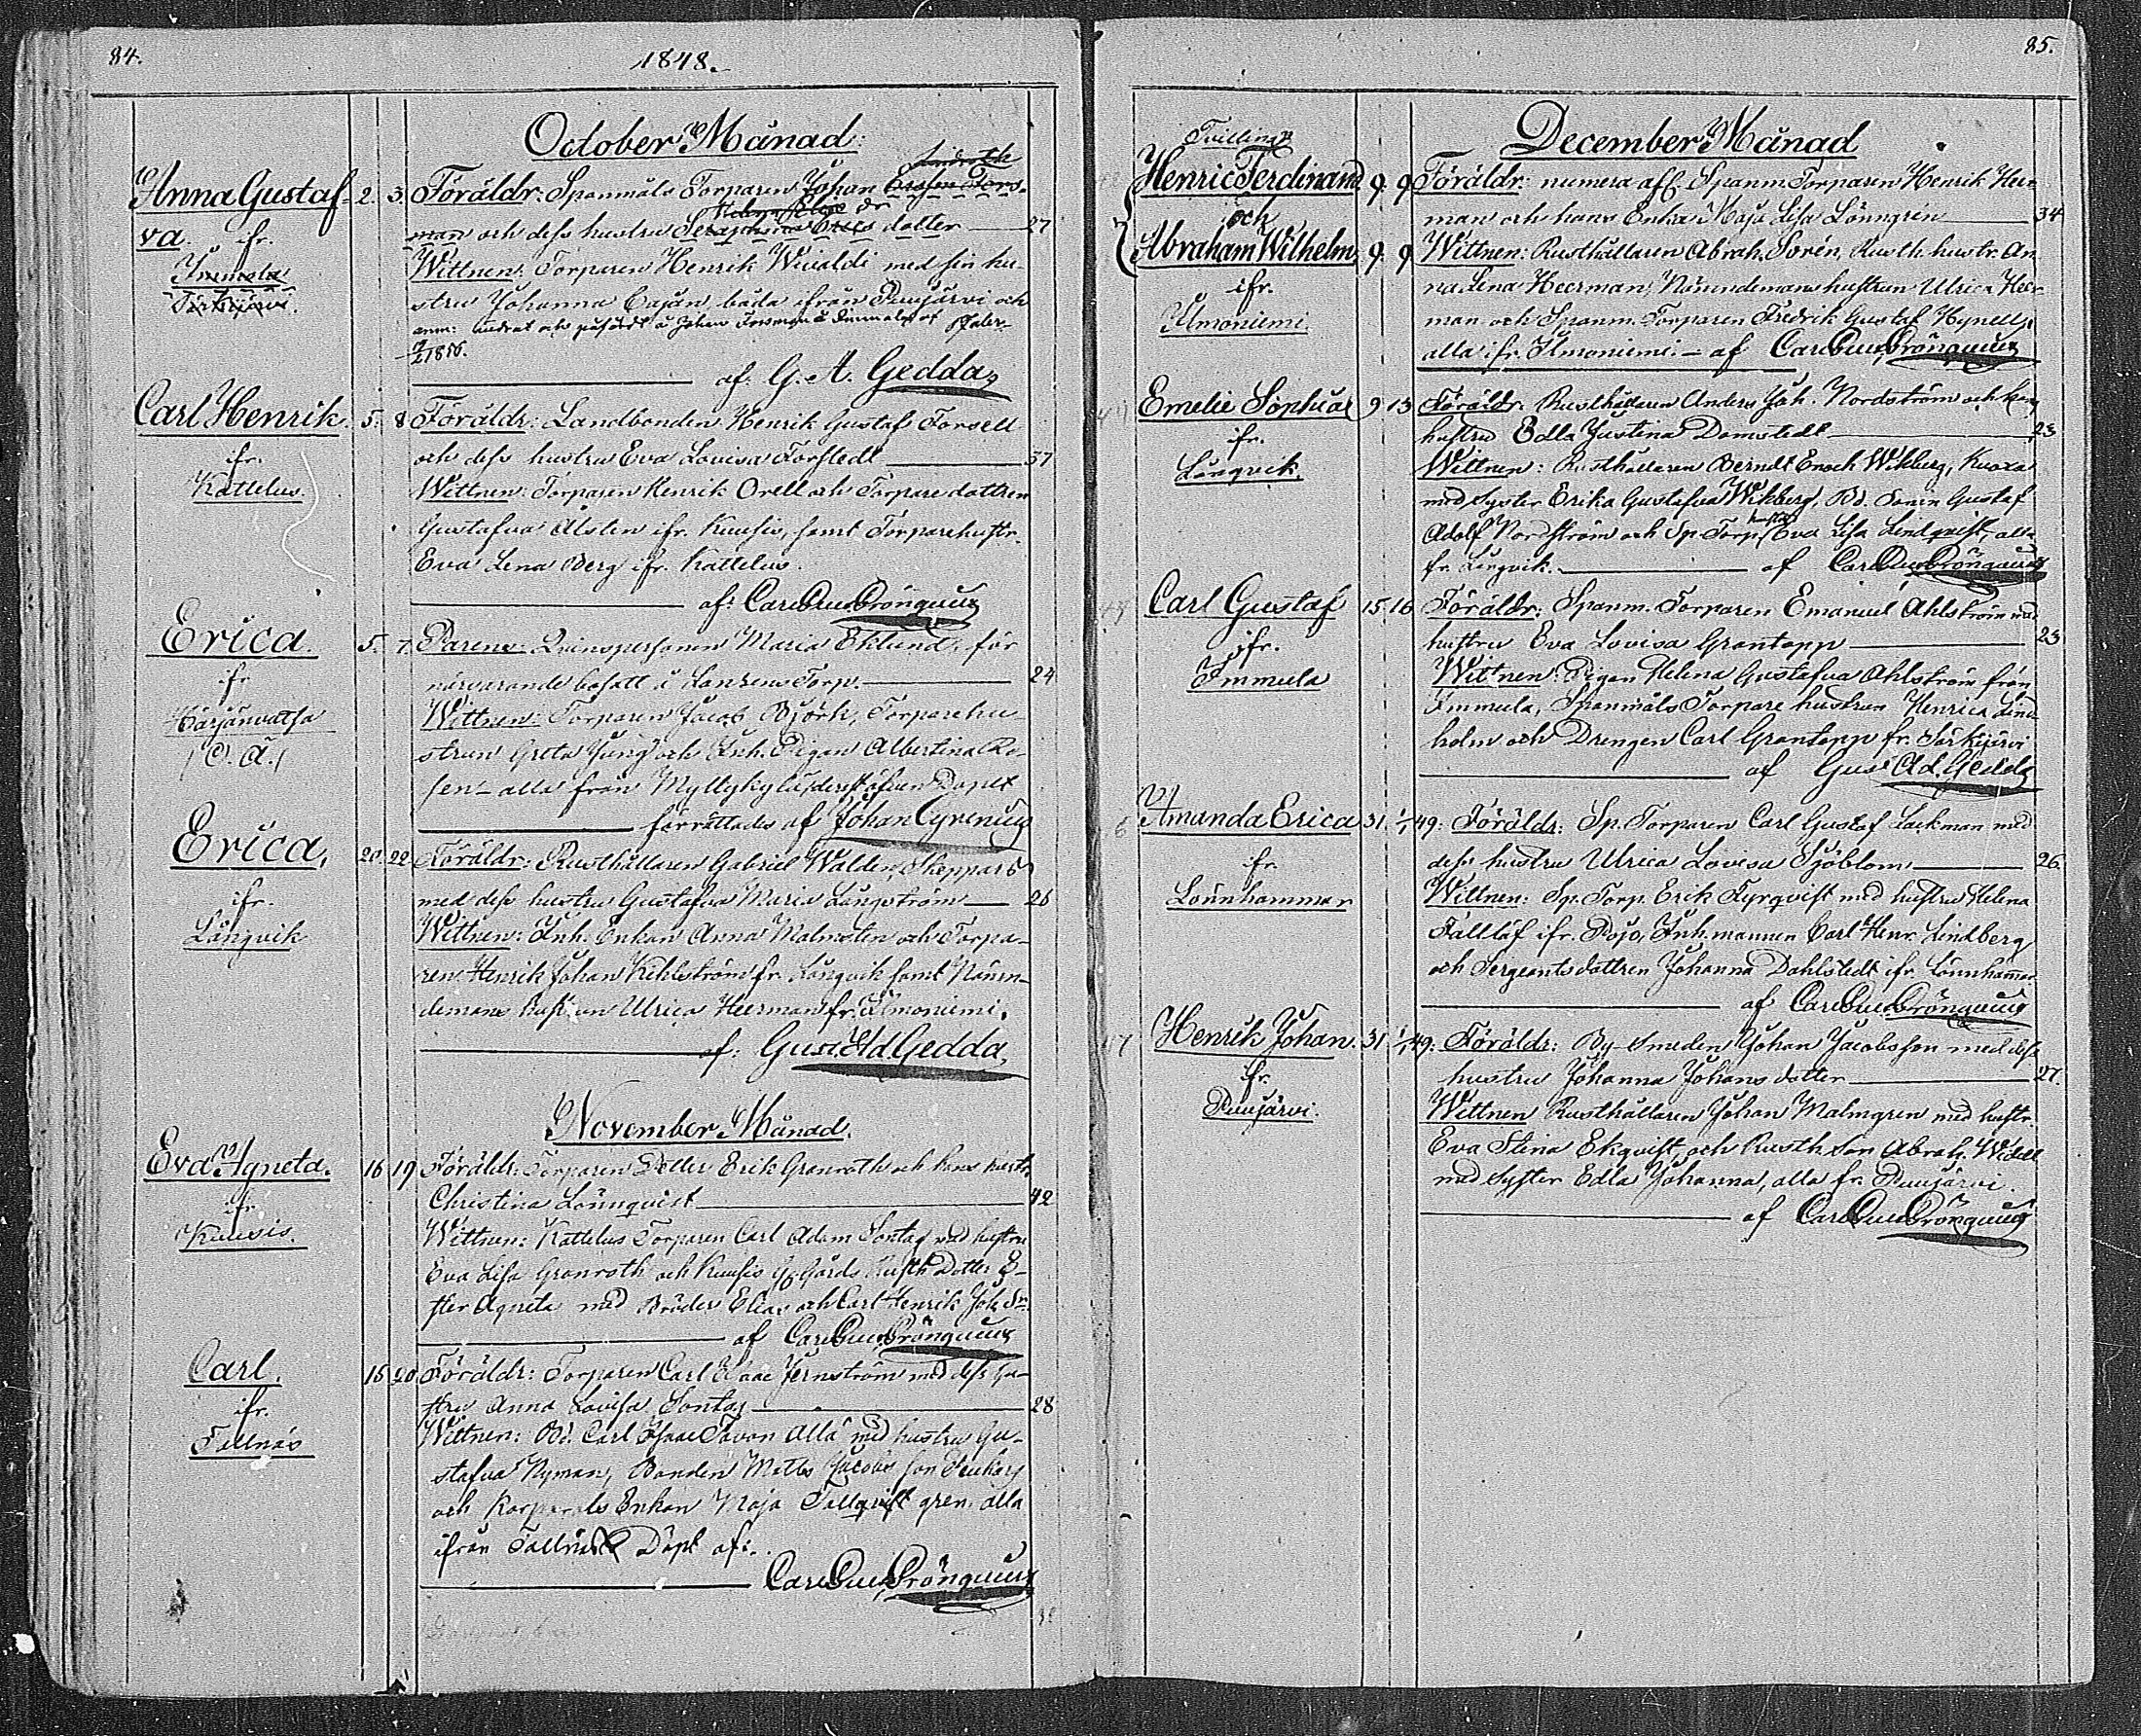 84.
1848.
October Månad:
Anna Gustaf-
va. ifr.
Immola
Särkijärvi.
2. 3. Föräldr: Spanmåls Torparen Johan
man och dess hustru dotter 27
Wittnen: Torparen Henrik Wivaldi med sin hu-
stru Johanna Cajan båda ifrån Puujärvi och
anm: ändrat och påfördt å Johan Forsman
1856.
af: G. A. Gedda
Carl Henrik.
ifr.
Kattelus
5. 8 Föräldr: Landbonden Henrik Gustaf Forsell
och dess hustru Eva Lovisa Forstedt 37
Wittnen: Torparen Henrik Orell och Torparedottren
Gustafva Alsten ifr. Kuusis, samt Torparehustr.
Eva Lena Berg ifr. Kattelus.
af: Carl Gus. Grönqvist
Erica.
ifr
Härjänvatsa
/O. Ä./
5. 7. Parens: Qvinspersonen Maria Eklund, för
närvarande bosatt å Torp. 24
Wittnen: Torparen Jacob Björk, Torparehu-
strun Greta Ljung och Inh. Pigan Albertina Ro-
sen - alla från Myllykylä, Dopet
förrättades af Johan Cyrenius
Erica,
ifr.
Långvik
20. 22. Föräldr: Rusthållaren Gabriel Walden, Skeppars
med dess hustru Gustafva Maria Långström 26
Wittnen: Inh. Enkan Anna Malmsten och Torpa-
ren Henrik Johan Kihlström fr. Långvik samt Näm-
demans Hustrun Ulrica Heerman fr. Ilmoniemi.
af: Gust. Ad Gedda,
November Månad.
Eva Agneta.
ifr
Kuusis.
16 19 Föräldr: Torparen Petter Erik Granroth och hans hustr.
Christina Lönnqvist 42
Wittnen: Kattelus Torparen Carl Adam Sontag med hustru
Eva Lisa Granroth och Kuusis Rusth. Dotter E-
ster Agneta med Broder Elias och Carl Henrik Joh. Sr.
af Carl Gus. Grönqvist
Carl.
ifr.
Tallnäs
18 20 Föräldr: Torparen Carl Isaac Jernström med dess hu-
stru Anna Lovisa Sontag 28
Wittnen: Bd. Carl Isaac Tavon Alla med hustru Gu-
stafva Nyman, Bonden Matts Jacobsson
och Korporals Enkan Maja Tallqvist gren, alla
ifrån Tallnäs. Döpt af:
Carl Gus. Grönqvist
85.
December Månad
Tvillingr
Henric Ferdinand
och
Abraham Wilhelm
ifr.
Ilmoniemi.
9. 9 Föräldr: numera afl. Spanm. Torparen Henrik Heer-
man och hans Enka Maja Lisa Lönngrén 34
9. 9 Wittnen: Rusthållaren Abrah. Sorén, Rusth. hustr. An-
na Lena Heerman, Nämndemans hustrun Ulrica Heer-
man och Spanm. Torparen Fredrik Gustaf Hynell,
alla ifr. Ilmoniemi. - af Carl Gus. Grönqvist
Emelie Sophia
ifr.
Långvik.
9 13 Föräldr: Rusthållaren Anders Joh. Nordström och hans
hustru Edla Justina Domstedt 23
Wittnen: Rusthållaren Berndt Enoch Wikberg,
med syster Erika Gustafva Wikberg, Bd. Sonen Gustaf
Adolf Nordström och Sp. Torp. hustru Eva Lisa Lindqvist, alla
fr. Långvik. af Carl Gus. Grönqvist
Carl Gustaf
ifr.
Immula
15. 16 Föräldr: Spanm. Torparen Emanuel Ahlström med
hustru Eva Lovisa Grantopp 23
Wittnen: Pigan Helena Gustafva Ahlström från
Immula, Spanmåls Torpare hustrun Henrica Lind-
holm och Drengen Carl Grantopp fr. Särkijärvi
af Gus. Ad. Gedda
Amanda Erica
ifr.
Lönnhammar
31. 1/1 49: Föräldr: Sp. Torparen Carl Gustaf Lackman med
dess hustru Ulrica Lovisa Sjöblom 26.
Wittnen: Sp. Torp. Erik Fyrqvist med hustru Helena
Fallläf ifr. Pojo, Inh. mannen Carl Henr. Lindberg
och Sergeants dottren Johanna Dahlstedt ifr. Lönnhammar.
af Carl Gus. Grönqvist
Henrik Johan.
ifr.
Puujärvi.
31. 1/1 49: Föräldr: By Smeden Johan Jacobsson med dess
hustru Johanna Johansdotter 27.
Wittnen Rusthållaren Johan Malmgren med hustr.
Eva Stina Ekqvist, och Rusth. Son Abrah. Widell
med Syster Edla Johanna, alla fr. Puujärvi.
af Carl Gus. Grönqvist